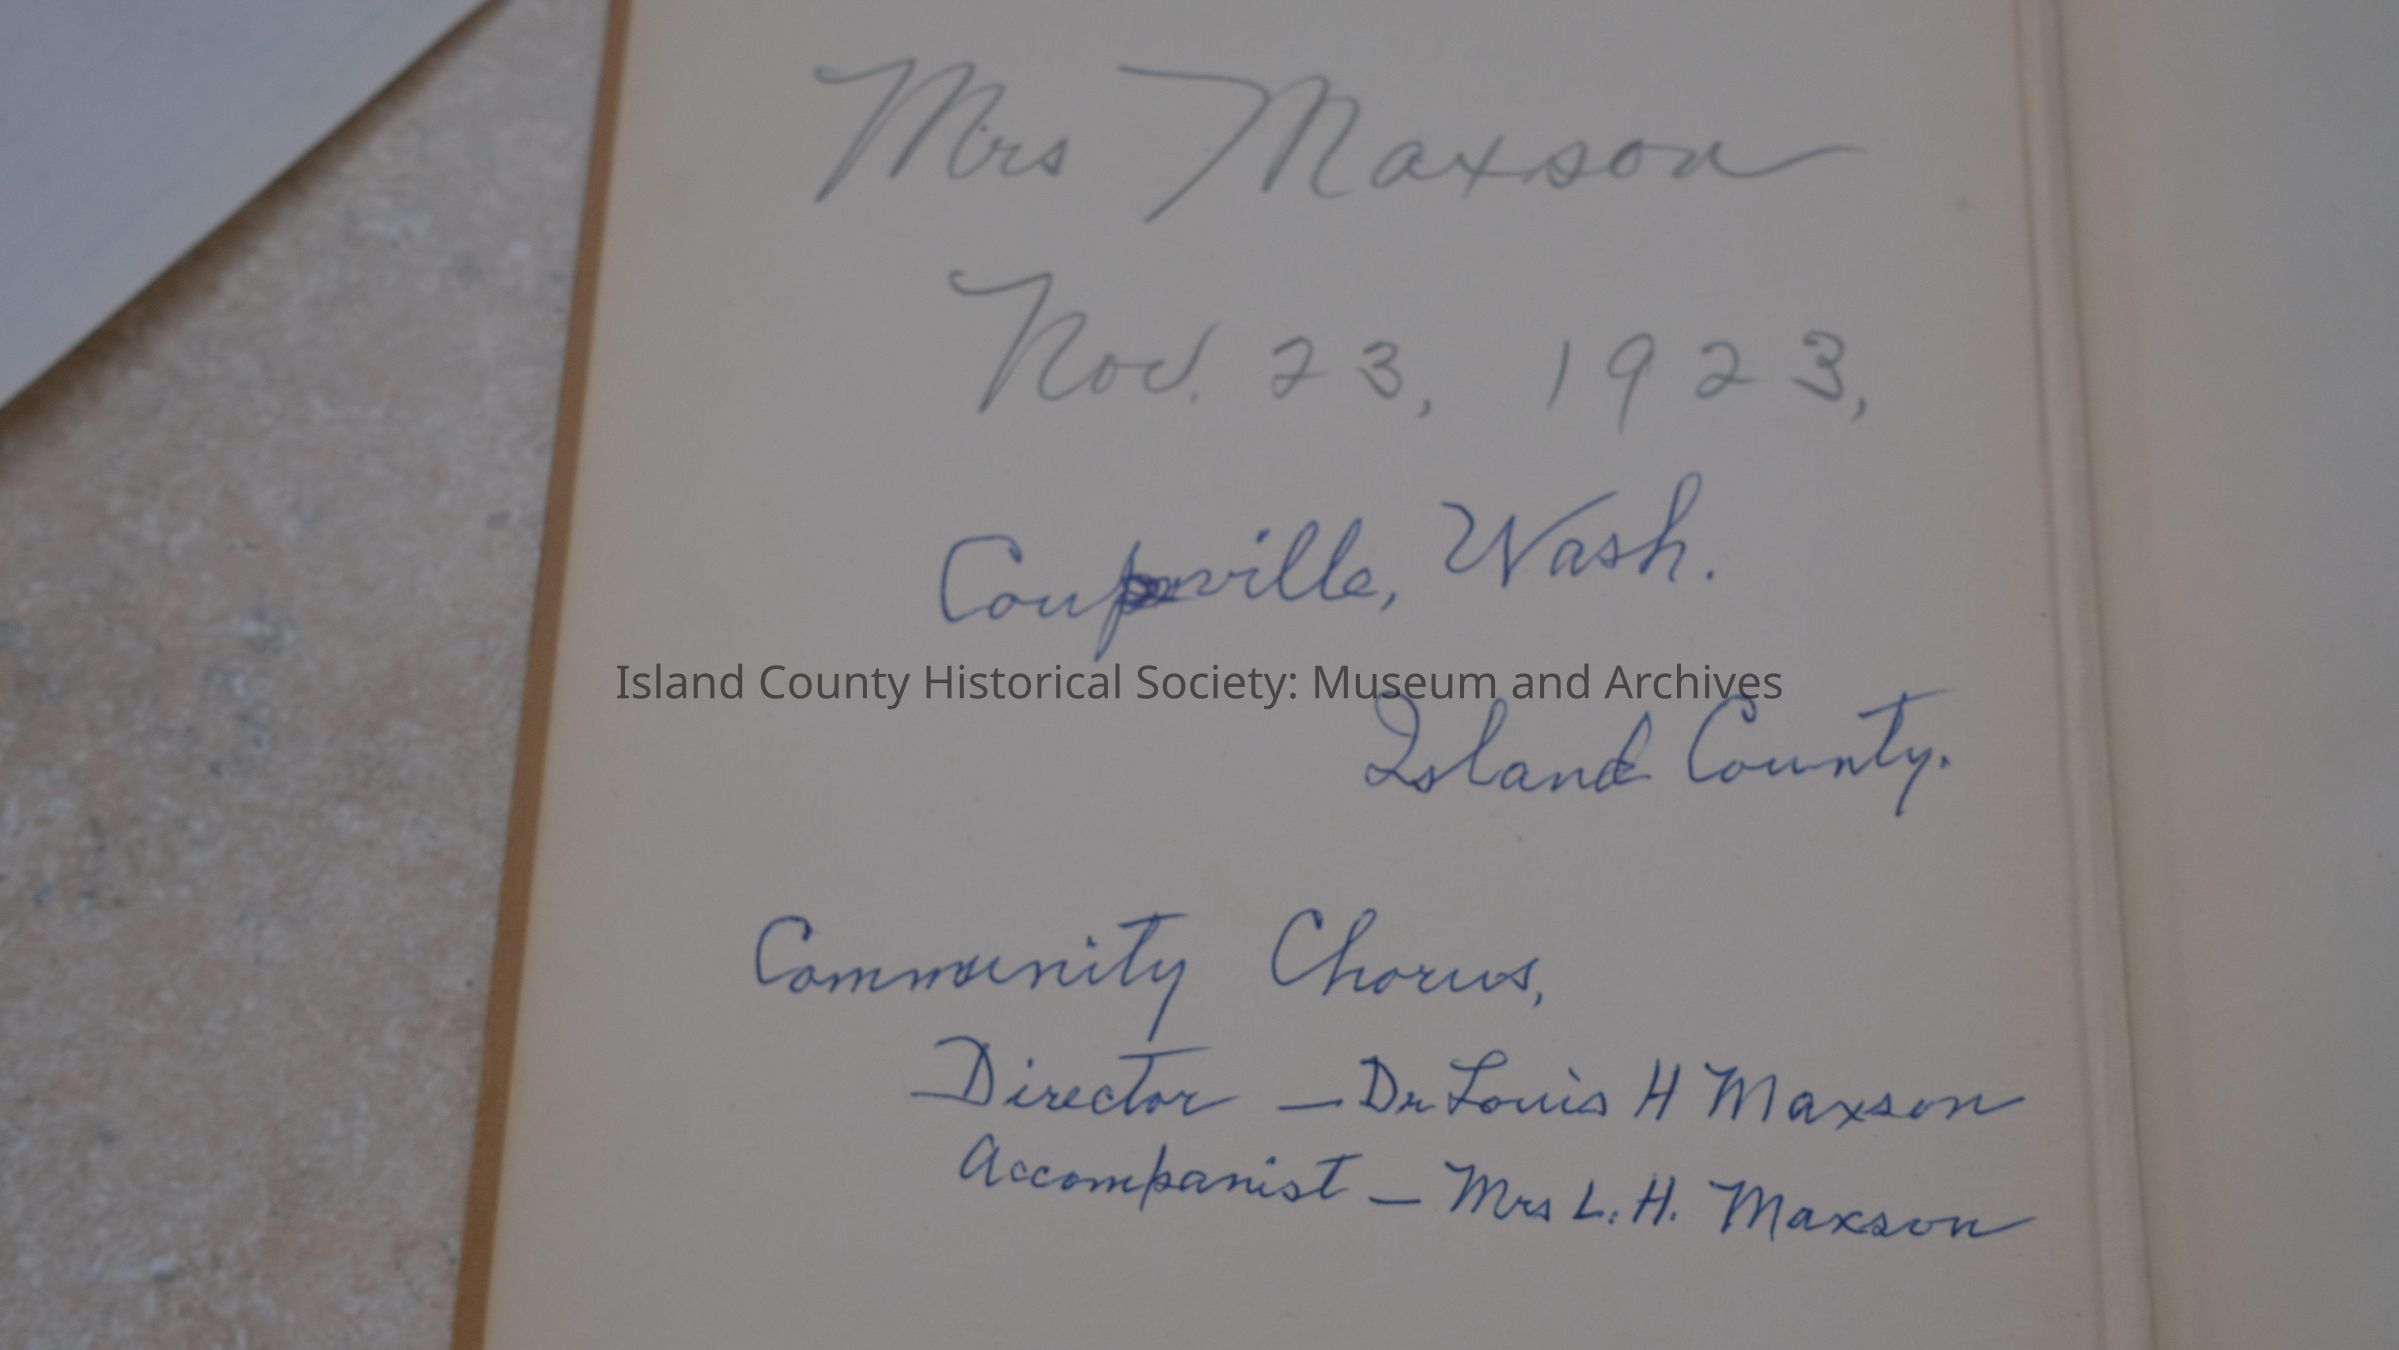 Mrs Maxson
Nov. 23, 1923,
Coupeville, Wash.
Island County Historical Society: Museum and Archives
Island County.
Community Chorus,
Director — Dr Louis H Maxson
Accompanist — Mrs L. H. Maxson